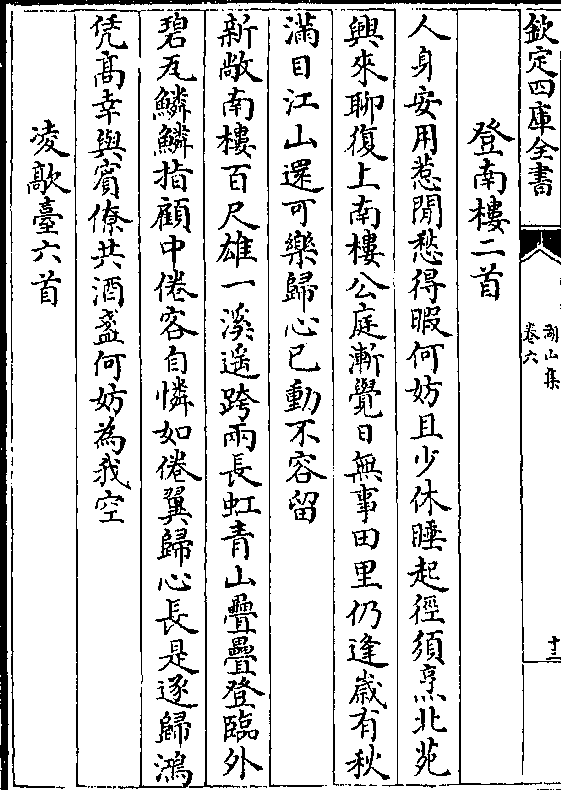 欽定四庫全書
湖山集
卷六
十三
登南樓二首
人身安用惹閒愁得暇何妨且少休睡起徑須烹北苑
興來聊復上南樓公庭漸覺日無事田里仍逢歲有秋
滿目江山還可樂歸心已動不容留
新敞南樓百尺雄一溪遥跨兩長虹青山疊疊登臨外
碧瓦鱗鱗指顧中倦客自憐如倦翼歸心長是逐歸鴻
凭髙幸與賓僚共酒盞何妨為我空
凌歊臺六首